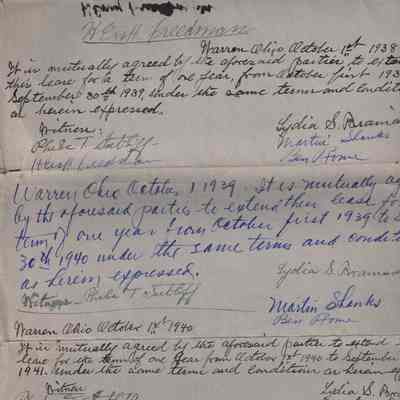 Warren Ohio October 1st 1938
It is mutually agreed by the aforesaid parties to exte
this lease for a term of one year, from October first 193
September 30th 1939, under the same terms and condit
as herein expressed.
Witness:
Lydia S.
Martin Shanks
Ben Home
Warren Ohio October 1 1939. It is mutually ag
by the aforesaid parties to extend their lease fo
term of one year from October first 1939 to
30th 1940 under the same terms and conditi
as herein expressed.
Lydia S.
Witness - Phila T Sutliff
Martin Shanks
Ben Home
Warren Ohio October 1st 1940
It is mutually agreed by the aforesaid parties to extend
lease for the term of one year from October 1st 1940 to September
1941. under the same terms and conditions as herein
Witness
Lydia S.